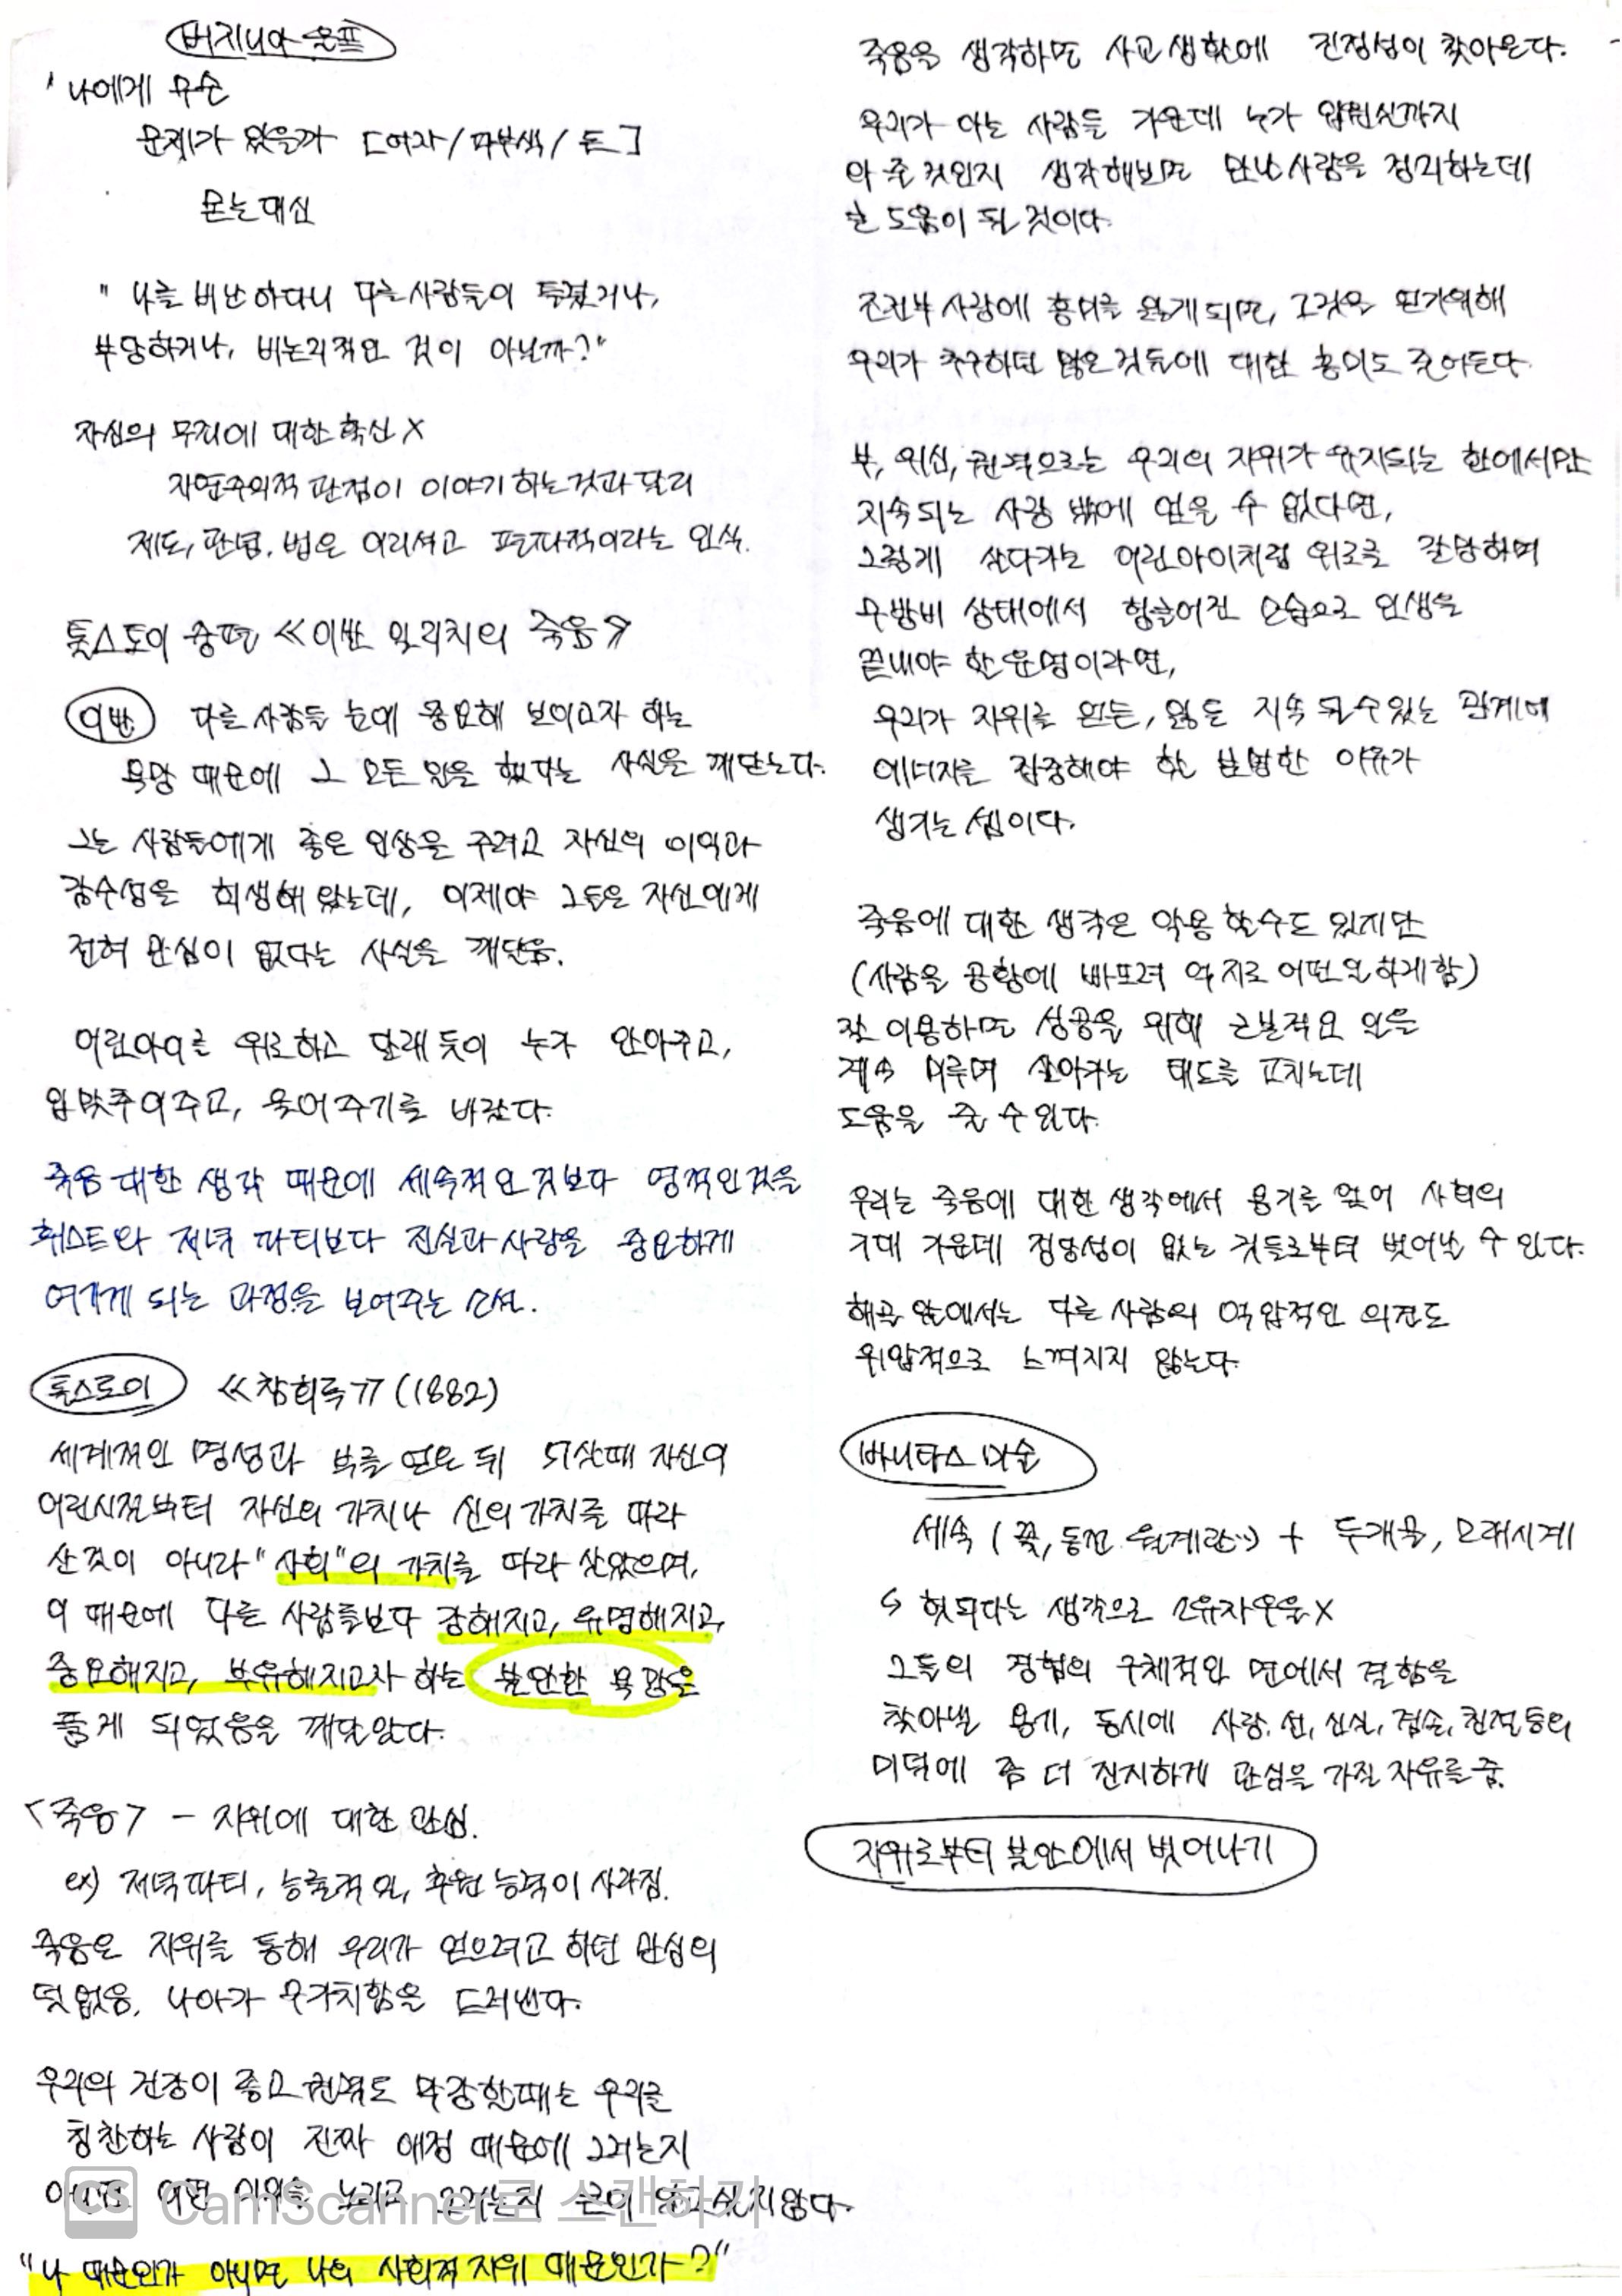 버지니아 울프
' 나에게 무슨
문제가 있을까 [여자/피부색/돈]
묻는대신
" 나를 비난하다니 다른사람들이 틀렸거나,
부당하거나, 비논리적인 것이 아닐까?"
자신의 무죄에 대한 확신 X
자연주의적 관점이 이야기하는것과 달리
제도, 관념, 법은 어리석고 편파적이라는 인식.
톨스토이 중편 《이반 일리치의 죽음》
이반 다른 사람들 눈에 중요해 보이고자 하는
욕망 때문에 그 모든 일을 했다는 사실을 깨닫는다.
그는 사람들에게 좋은 인상을 주려고 자신의 이익과
감수성을 희생해 왔는데, 이제야 그들은 자신에게
전혀 관심이 없다는 사실을 깨달음.
어린아이를 위로하고 달래듯이 누가 안아주고,
입맞추어주고, 울어주기를 바랐다.
죽음 대한 생각 때문에 세속적인 것보다 영적인것을
휘스트와 저녁 파티보다 진실과 사랑을 중요하게
여기게 되는 과정을 보여주는 소설.
톨스토이 《참회록》(1882)
세계적인 명성과 부를 얻은 뒤 51살때 자신이
어린시절부터 자신의 가치나 신의 가치를 따라
산 것이 아니라 "사회"의 가치를 따라 살았으며,
이 때문에 다른 사람들보다 강해지고, 유명해지고,
중요해지고, 부유해지고자 하는 불안한 욕망을
품게 되었음을 깨달았다.
<죽음> - 지위에 대한 관심.
ex) 저녁파티, 능률적 일, 후원 능력이 사라짐.
죽음은 지위를 통해 우리가 얻으려고 하던 관심의
덧없음, 나아가 무가치함을 드러낸다.
우리의 건강이 좋고 권력도 막강할때는 우리를
칭찬하는 사람이 진짜 애정 때문에 그러는지
아니면 어떤 이익을 노리고 그러는지 굳이 알고싶지않다.
CS CamScanner로 스캔하기
"나 때문인가 아니면 나의 사회적 지위 때문인가?"
죽음을 생각하면 사교 생활에 진정성이 찾아온다.
우리가 아는 사람들 가운데 누가 입원실까지
와 줄 것인지 생각해보면 만날사람을 정리하는데
큰 도움이 될 것이다.
조건부 사랑에 흥미를 잃게 되면, 그것을 얻기위해
우리가 추구하던 많은 것들에 대한 흥미도 줄어든다.
부, 위신, 권력으로는 우리의 지위가 유지되는 한에서만
지속되는 사랑 밖에 얻을 수 없다면,
그렇게 살다가는 어린아이처럼 위로를 갈망하며
무방비 상태에서 헝클어진 모습으로 인생을
끝내야 할 운명이라면,
우리가 지위를 얻든, 잃든 지속 될수있는 관계에
에너지를 집중해야 할 분명한 이유가
생기는 셈이다.
죽음에 대한 생각은 악용 할수도 있지만
(사람을 공황에 빠뜨려 억지로 어떤일 하게함)
잘 이용하면 성공을 위해 근본적인 일을
계속 미루며 살아가는 태도를 고치는데
도움을 줄 수 있다.
우리는 죽음에 대한 생각에서 용기를 얻어 사회의
기대 가운데 정당성이 없는 것들로부터 벗어날 수 있다.
해골 앞에서는 다른 사람의 억압적인 의견도
위압적으로 느껴지지 않는다.
바니타스 미술
세속 (꽃, 동전, 월계관…) + 두개골, 모래시계
↳ 헛되다는 생각으로 소유자우울X
그들의 경험의 구체적인 면에서 결함을
찾아낼 용기, 동시에 사랑, 선, 신실, 겸손, 친절등의
미덕에 좀 더 진지하게 관심을 가질 자유를줌.
지위로부터 불안에서 벗어나기